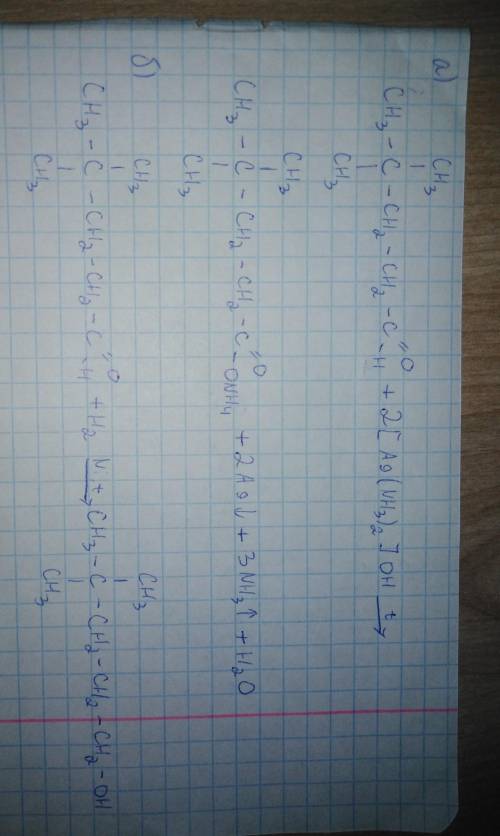 а)
CH3
CH3 - C - CH2 - CH2 - C - H + 2[Ag(NH3)2]OH t→
O
CH3
CH3
CH3 - C - CH2 - CH2 - C - ONH4 + 2Ag↓ + 3NH3↑ + H2O
O
CH3
б)
CH3
CH3
CH3 - C - CH2 - CH2 - C - H + H2 Ni t→ CH3 - C - CH2 - CH2 - CH2 - OH
O
CH3
CH3